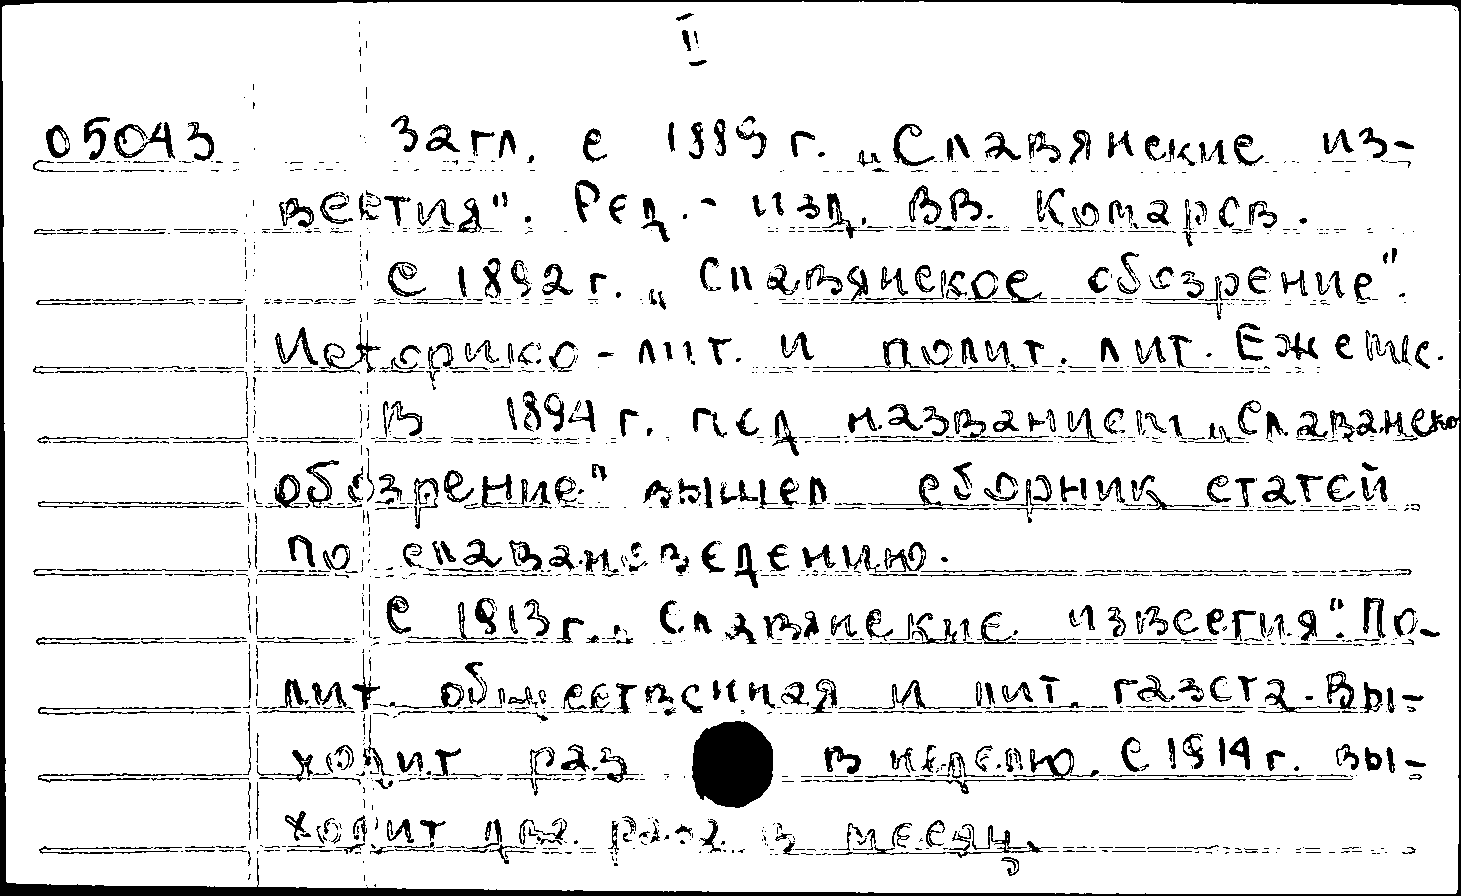 II
05043 Загл. с 1889 г. „Славянские из-
вестия". Ред.- изд. В.В. Комаров.
С 1892 г. „Славянское обозрение".
Историко-лит. и полит. лит. Ежемес.
В 1894 г. под названием „Славянско
обозрение" вышел сборник статей
по славановедению.
С 1913 г. „Славянские известия". По-
лит. общественная и лит. газета. Вы-
ходит раз в неделю. С 1914 г. вы-
ходит два раза в месяц.